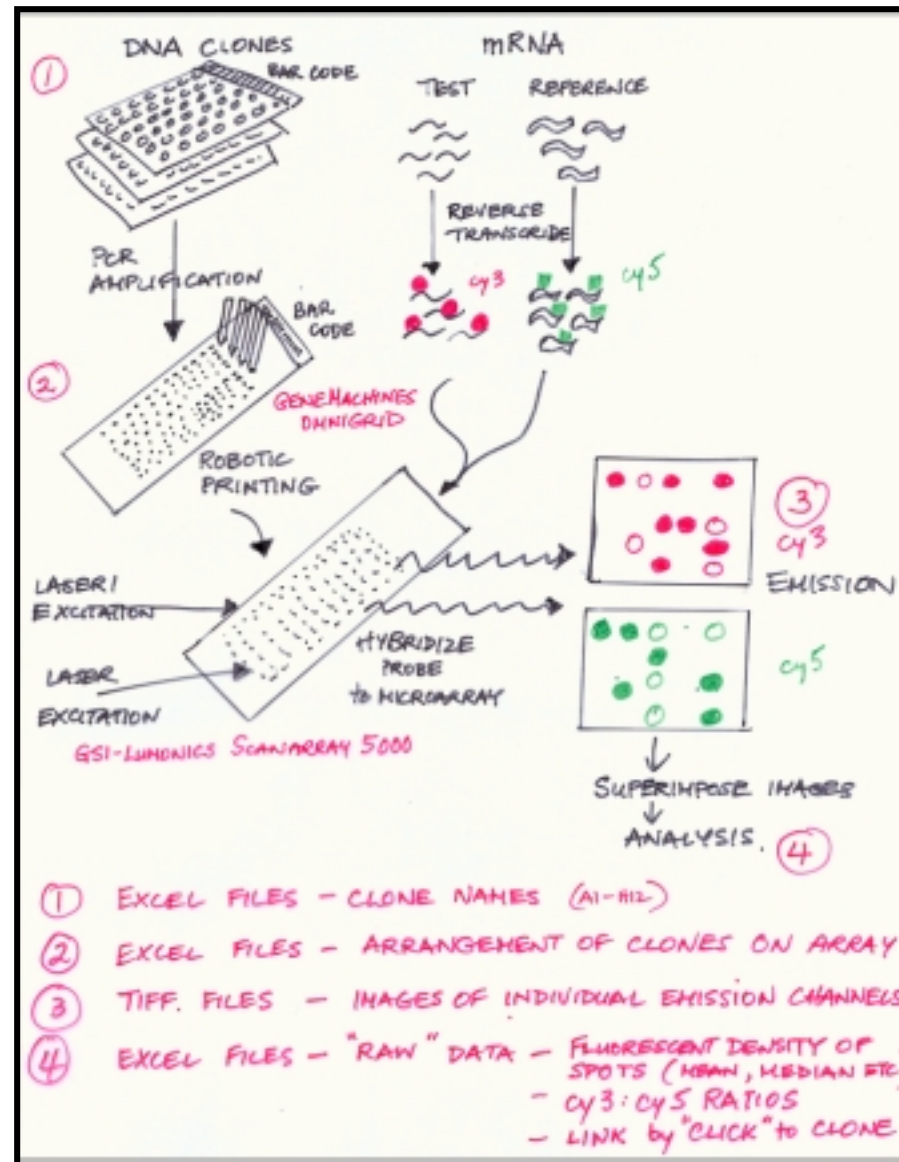 DNA CLONES
BAR CODE
①
mRNA
TEST
REFERENCE
REVERSE
TRANSCRIDE
PCR
AMPLIFICATION
BAR
CODE
cy3
cy5
②
GENEMACHINES
OMNIGRID
ROBOTIC
PRINTING
LASER
EXCITATION
LASER
EXCITATION
HYBRIDIZE
PROBE
to MICROARRAY
GSI-LUMONICS SCANARRAY 5000
③
cy3
EMISSION
cy5
SUPERIMPOSE IMAGES
ANALYSIS.
④
① EXCEL FILES - CLONE NAMES (A1-H12)
② EXCEL FILES - ARRANGEMENT OF CLONES ON ARRAY
③ TIFF. FILES - IMAGES OF INDIVIDUAL EMISSION CHANNELS
④ EXCEL FILES - "RAW" DATA - FLUORESCENT DENSITY OF
SPOTS (MEAN, MEDIAN ETC
- cy3:cy5 RATIOS
- LINK by "CLICK" to CLONE